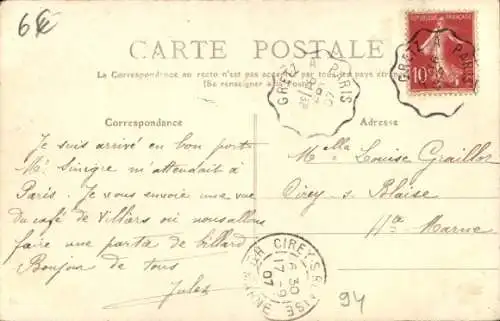 6€
CARTE POSTALE
La Correspondance au recto n'est pas acceptée par tous les pays étrangers
(Se renseigner à la Poste)
RÉPUBLIQUE FRANÇAISE
10
GRETZ A PARIS
07
GRETZ A PARIS
Correspondance
Je suis arrivé en bon port
Mr Sinègre m'attendait à
Paris. Je vous envoie une vue
du café de Villiars où nous allons
faire une partie de billard
Bonjour de tous
Jules
Adresse
Melle Louise Graillot
Cirey s. Blaise
Hte Marne
CIREY-S-BLAISE
6 30
17 -9
07
HTE MARNE
94